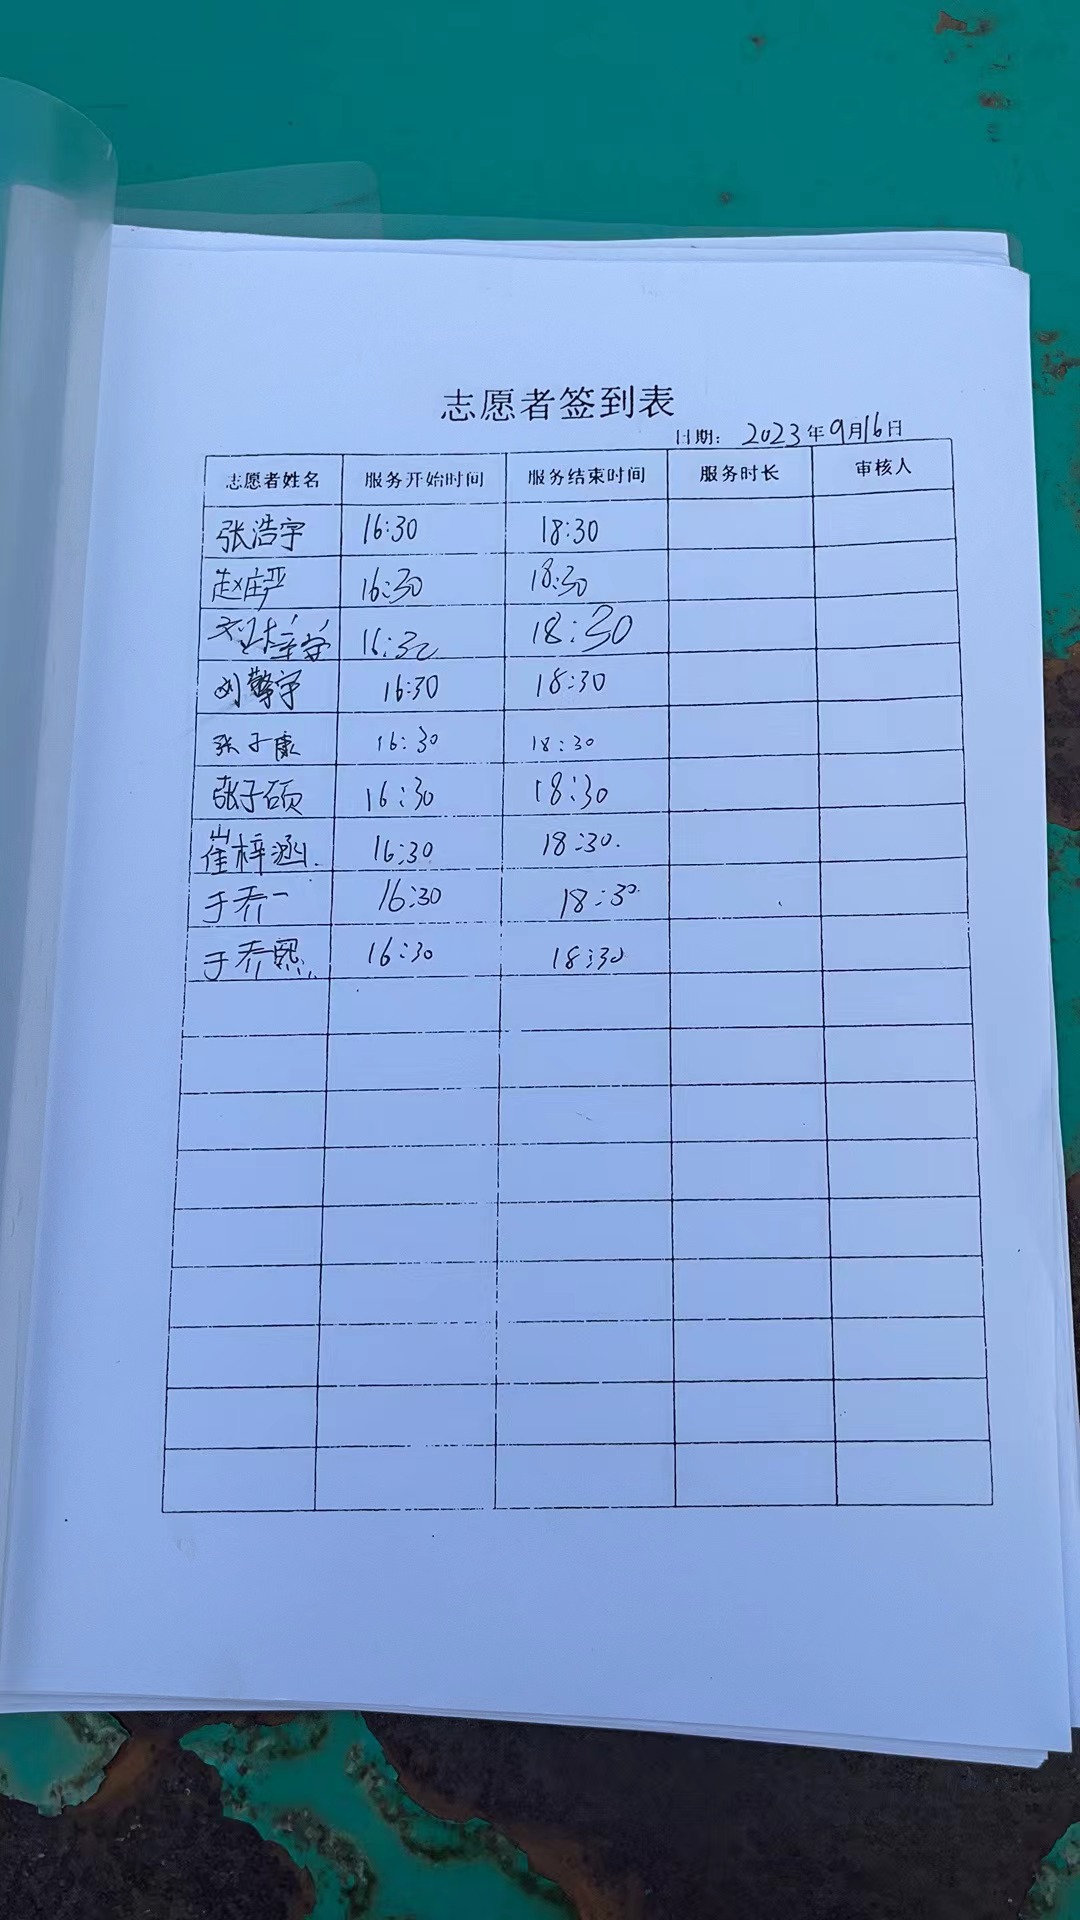 志愿者签到表
日期: 2023年9月16日
志愿者姓名 服务开始时间 服务结束时间 服务时长 审核人
张浩宇 16:30 18:30
赵庄严 16:30 18:30
16:30 18:30
刘擎宇 16:30 18:30
张子康 16:30 18:30
张子硕 16:30 18:30
崔梓涵. 16:30 18:30.
于乔一 16:30 18:30
于乔熙 16:30 18:30